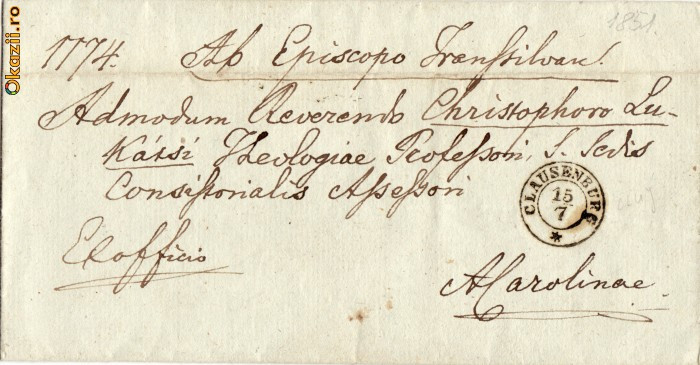 Okazii.ro
1851.
1774. Ab Episcopo Transsilvan.
Admodum Reverendo Christophoro Lu-
kátsi Theologiae Professori, S. Sedis
Consistorialis Assessori
CLAUSENBURG
15
7
Ex officio
A Carolinae